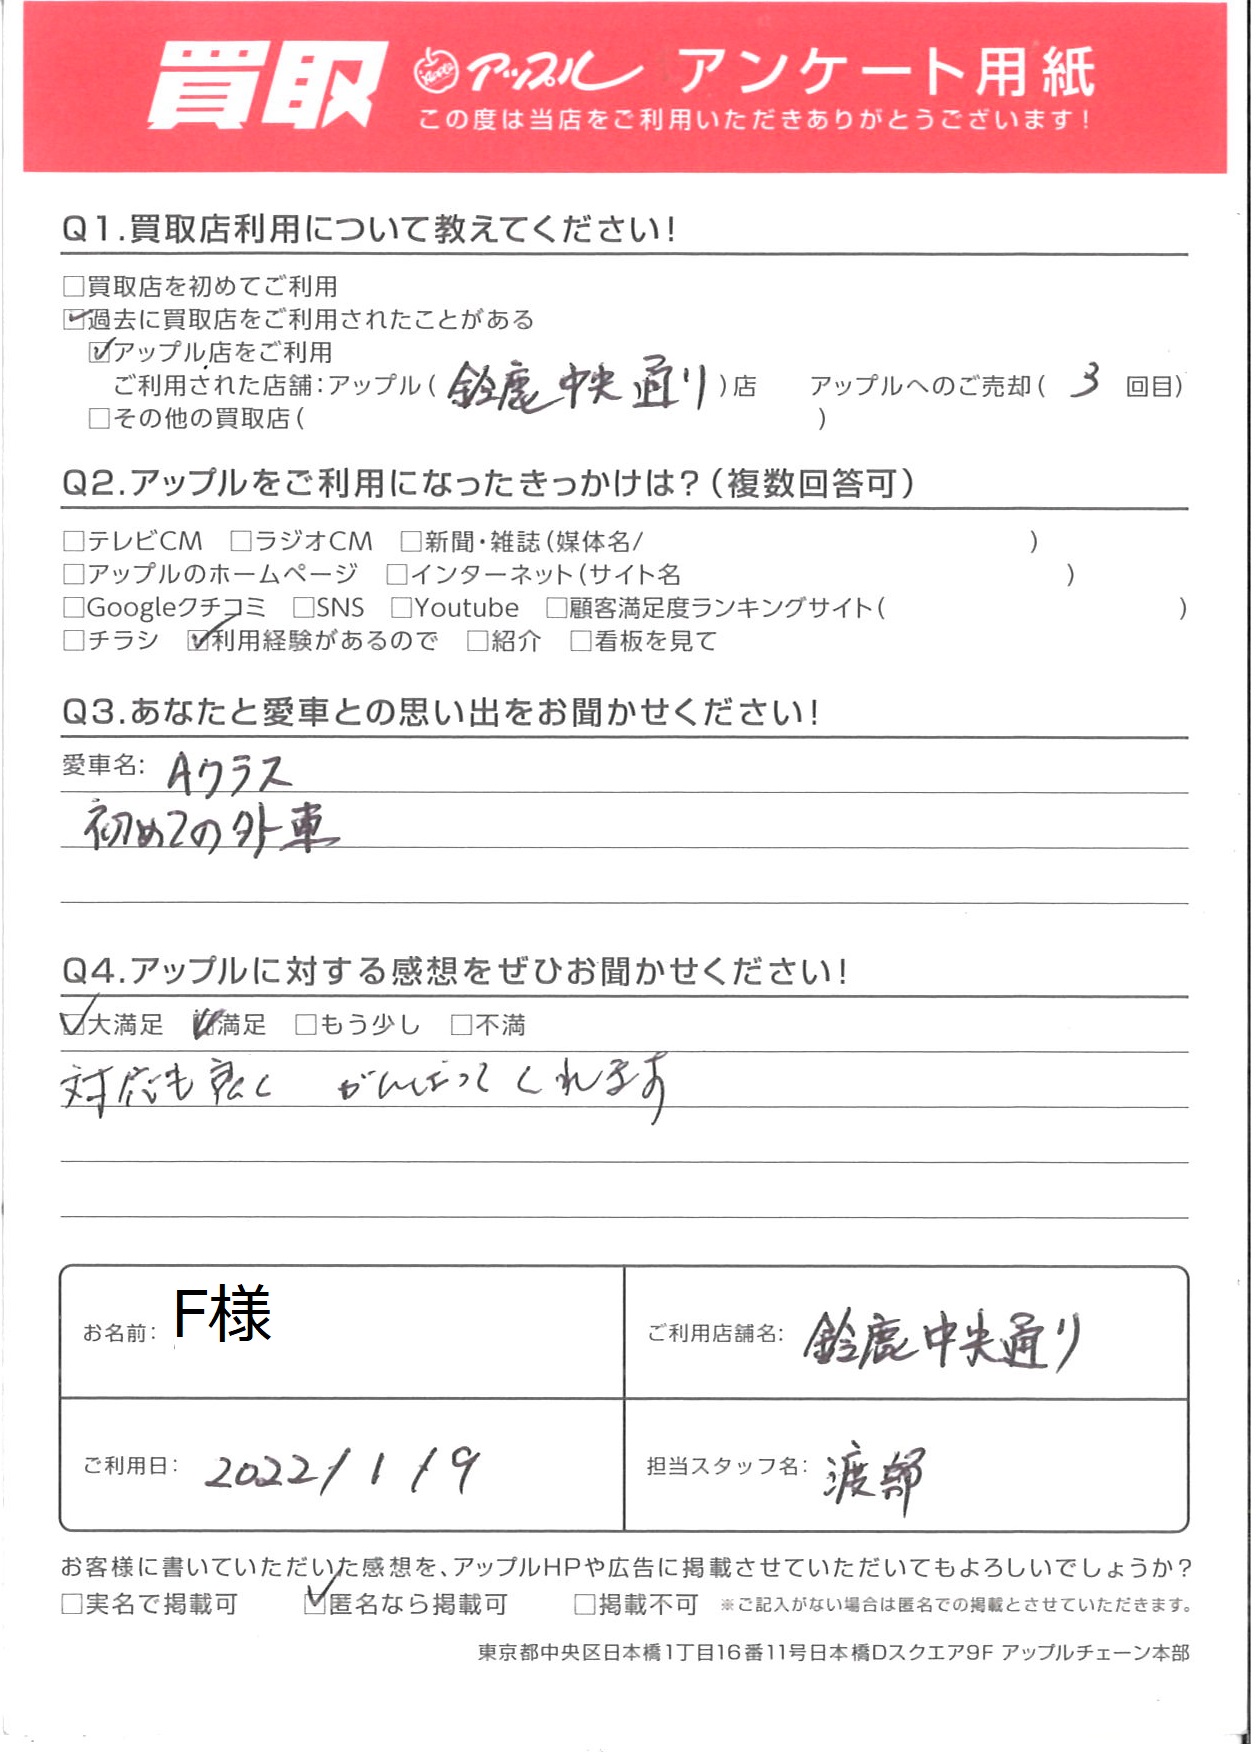 買取 アップル アンケート用紙
この度は当店をご利用いただきありがとうございます!
Q1.買取店利用について教えてください!
□買取店を初めてご利用
☑過去に買取店をご利用されたことがある
☑アップル店をご利用
ご利用された店舗:アップル(鈴鹿中央通り)店 アップルへのご売却(3回目)
□その他の買取店( )
Q2.アップルをご利用になったきっかけは?(複数回答可)
□テレビCM □ラジオCM □新聞・雑誌(媒体名/ )
□アップルのホームページ □インターネット(サイト名 )
□Googleクチコミ □SNS □Youtube □顧客満足度ランキングサイト( )
□チラシ ☑利用経験があるので □紹介 □看板を見て
Q3.あなたと愛車との思い出をお聞かせください!
愛車名: Aクラス
初めての外車
Q4.アップルに対する感想をぜひお聞かせください!
☑大満足 ☑満足 □もう少し □不満
対応も良く がんばってくれます
お名前: F様 ご利用店舗名: 鈴鹿中央通り
ご利用日: 2022/1/9 担当スタッフ名: 渡部
お客様に書いていただいた感想を、アップルHPや広告に掲載させていただいてもよろしいでしょうか?
□実名で掲載可 ☑匿名なら掲載可 □掲載不可 ※ご記入がない場合は匿名での掲載とさせていただきます。
東京都中央区日本橋1丁目16番11号日本橋Dスクエア9F アップルチェーン本部